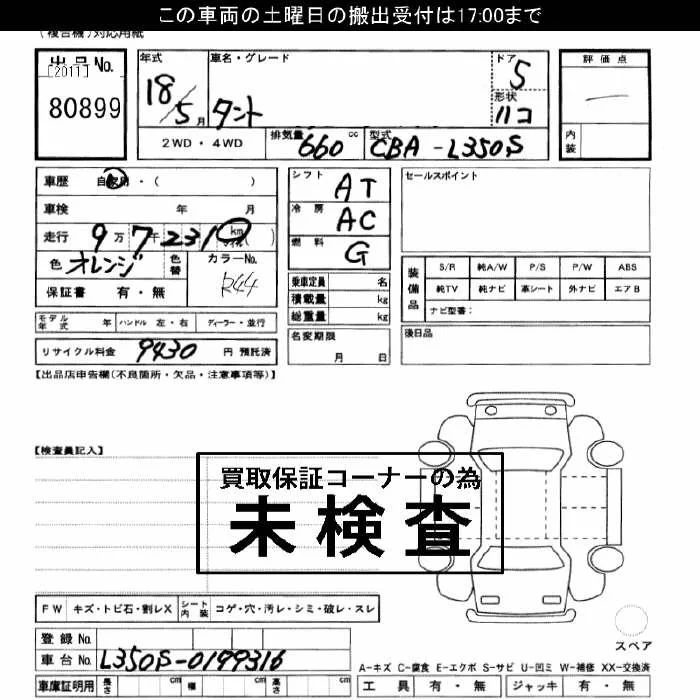 この車両の土曜日の搬出受付は17:00まで
(複合機)対応用紙
出品No.
[2011]
80899
年式
18/5月
車名・グレード
タント
ドア
5
形状
ハコ
2WD・4WD
排気量 660 cc
型式 CBA-L350S
評価点
―
内装
車歴 自家用・( )
車検 年 月
走行 9万7千231km マイル( )
色 オレンジ 色替
カラーNo. R44
保証書 有・無
モデル年式 年 ハンドル 左・右 ディーラー・並行
リサイクル料金 9430 円 預託済
シフト AT
冷房 AC
燃料 G
乗車定員 名
積載量 kg
総重量 kg
名変期限
月 日
セールスポイント
装備品
S/R 純A/W P/S P/W ABS
純TV 純ナビ 革シート 外ナビ エアB
ナビ型番:
後日品
【出品店申告欄(不良箇所・欠品・注意事項等)】
【検査員記入】
買取保証コーナーの為
未検査
FW キズ・トビ石・割レX シート内装 コゲ・穴・汚レ・シミ・破レ・スレ
スペア
登録No.
車台No. L350S-0199316
車庫証明用 長さ cm 幅 cm 高さ cm
A-キズ C-腐食 E-エクボ S-サビ U-凹ミ W-補修 XX-交換済
工具 有・無 ジャッキ 有・無